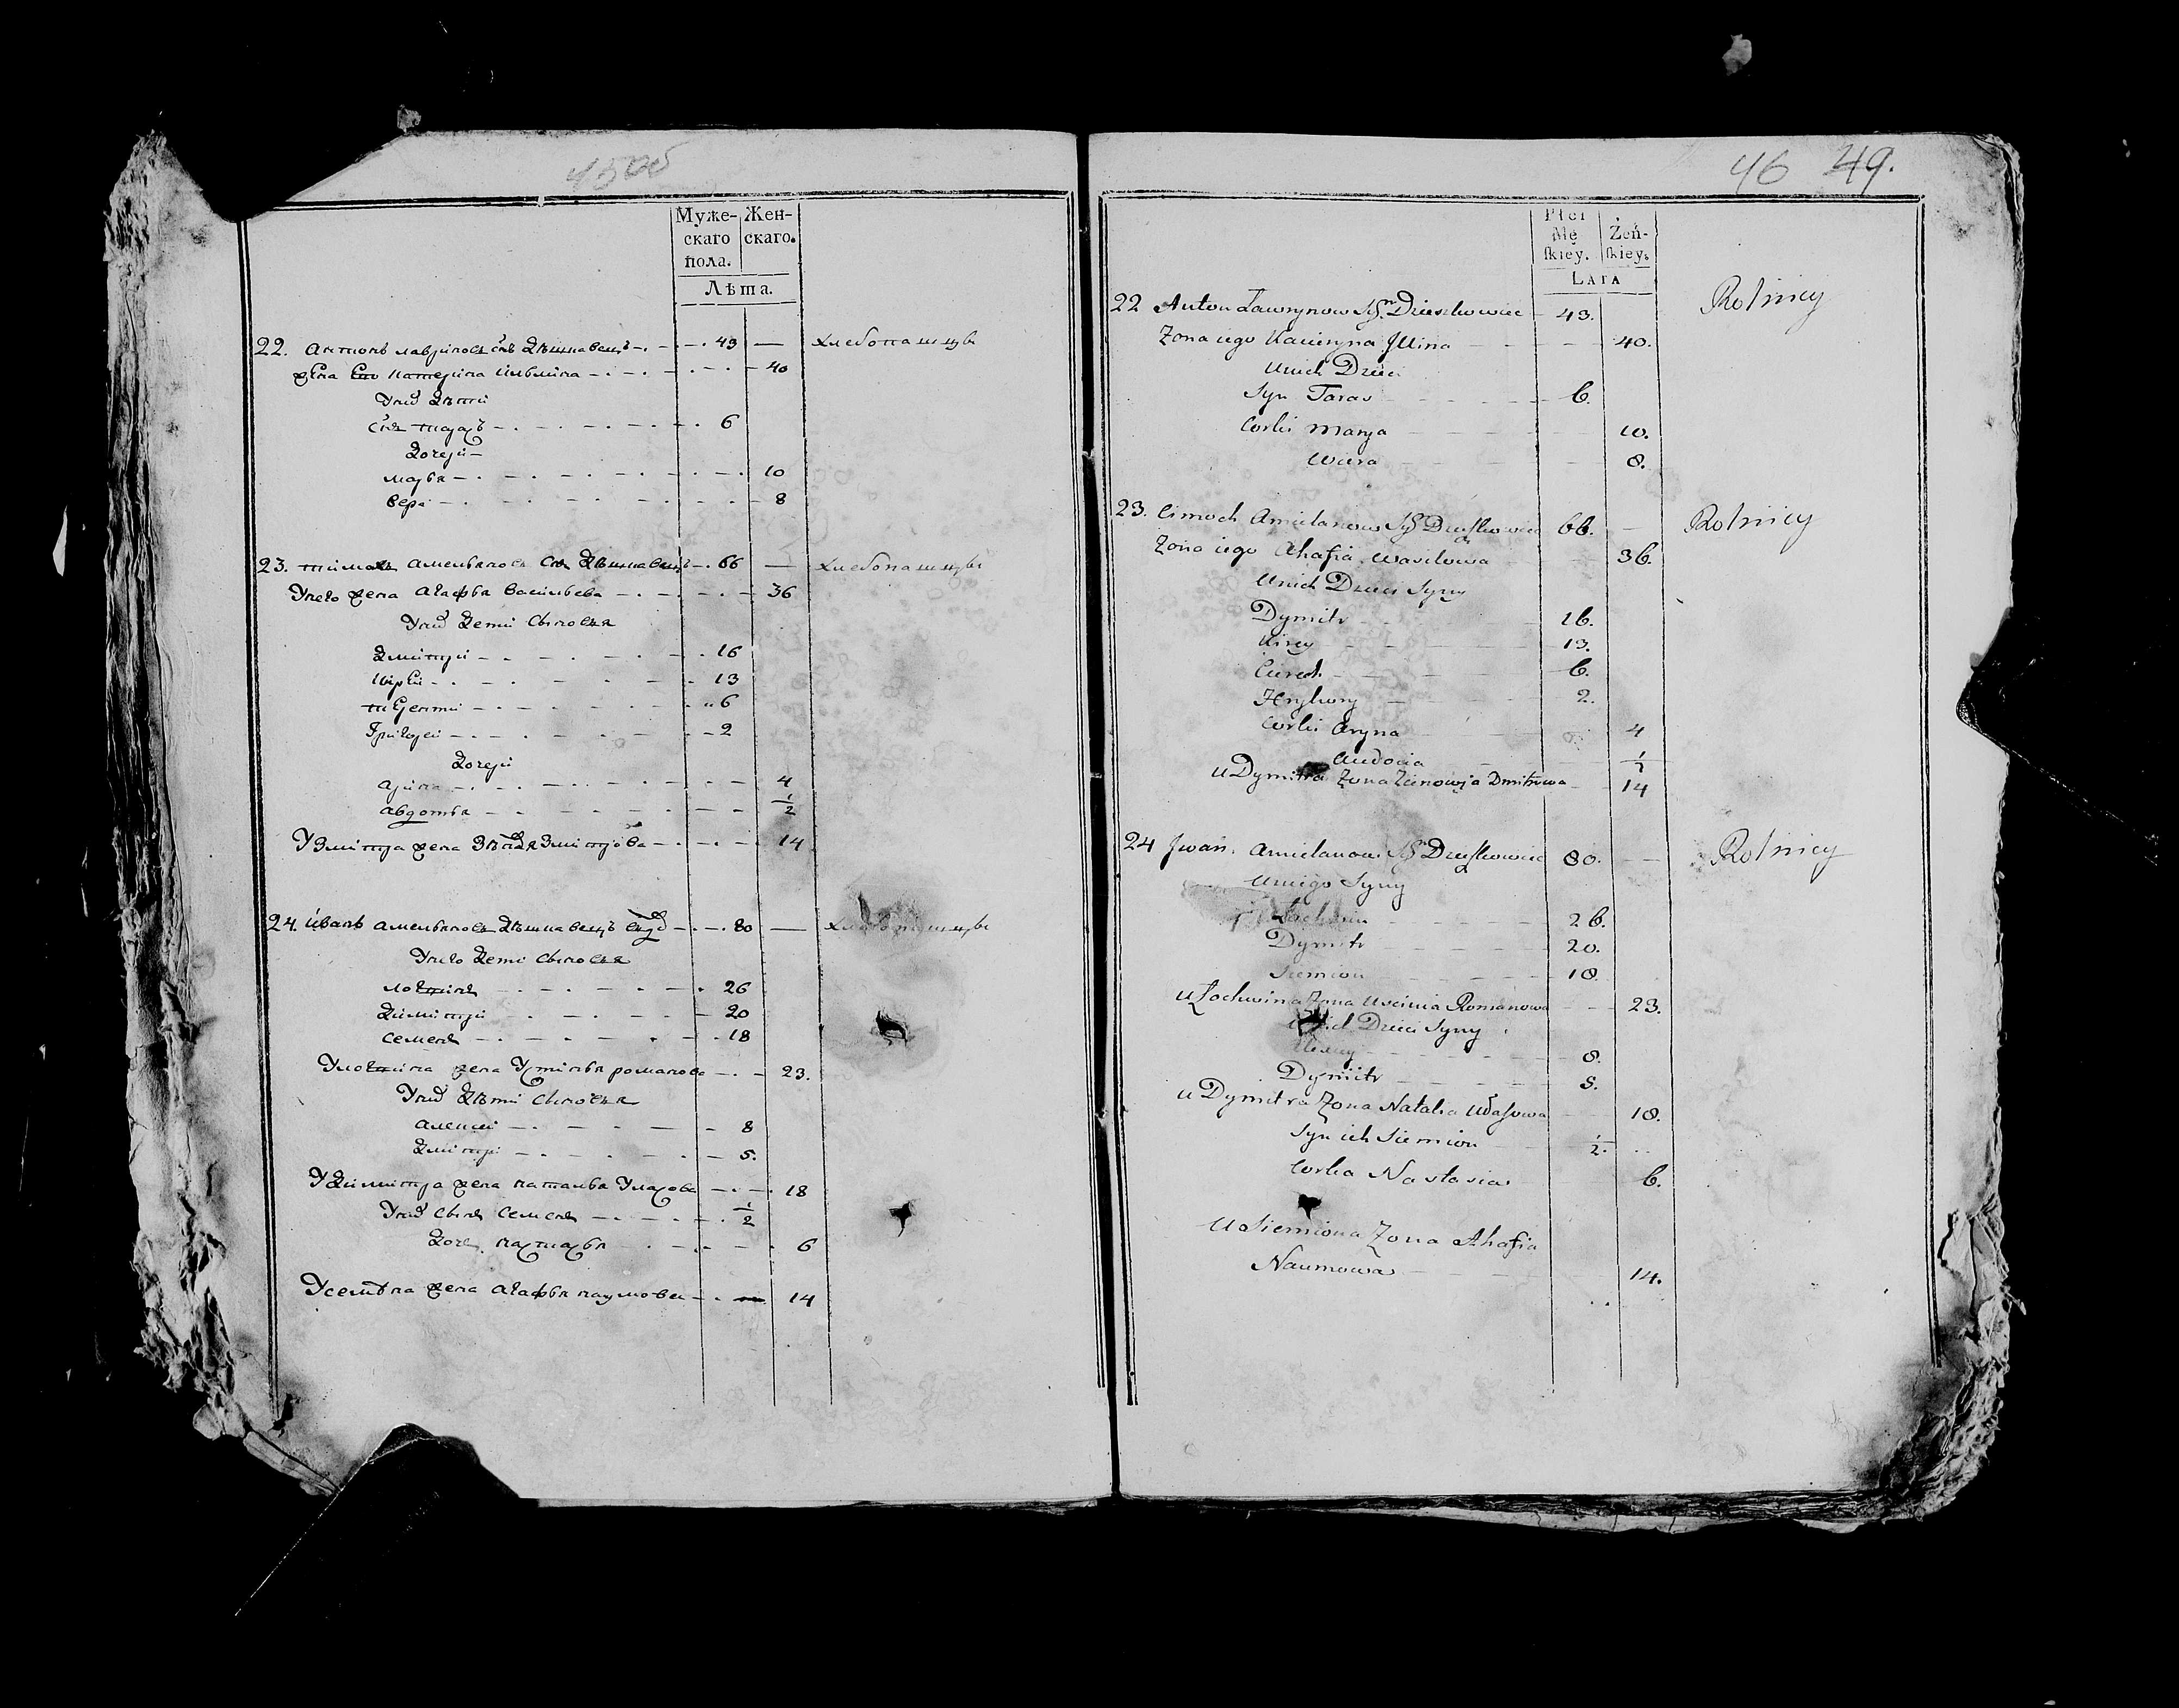 45 об
Муже-
скаго
пола.
Жен-
скаго.
Лѣта.
22. Антонъ лавриновъ снъ Дѣшкавецъ 43 — хлебопашцы
жена Его катерина ильина 40
У них дѣти
снъ тарас 6
Дочери
марья 10
вера 8
23. тимохъ амельяновъ снъ Дѣшкавецъ 66 — хлебопашцы
У него жена агафья васильева 36
У них Дети Сыновья
Дмитрей 16
кирей 13
терентей 6
Григорей 2
Дочери
арина 4
авдотья 1/2
У Змитра жена Змитрова 14
24. иванъ амельяновъ Дѣшкавецъ 80 — хлебопашцы
У него Дети Сыновья
26
Димитрей 20
семенъ 18
жена Устинья романова 23.
У них Дѣти Сыновья
алексей 8
Дмитрей 5.
У Димитра жена наталья 18
У них сынъ семенъ 1/2
Дочь настасья 6
У семёна жена агафья наумова 14
46 49.
Płci
Mę
skiey.
Żeń-
skiey.
Lata
22 Anton Ławrynow Sn Dzieszkowiec 43. Rolnicy
Zona iego Kacieryna Jllina 40.
U nich Dzieci
Syn Taras 6.
Corki Marya 10.
Wiera 8.
23. Cimoch Amielanow Sn Dzieszkowiec 66. — Rolnicy
Zona iego Ahafia Wasilowa 36.
U nich Dzieci Syny
Dymitr 16.
Kirey 13.
6.
Hryhory 2.
Corki Aryna 4
Audocia 1/2
U Dymitra Zona Zienowja Dmitrowa 14
24 Jwan Amielanow Sn Dzieszkowiec 80. — Rolnicy
U niego Syny
26.
Dymitr 20.
Siemion 18.
U Łochwina Zona Uscinia Romanowa 23.
U nich Dzieci Syny
8.
Dymitr 5.
U Dymitra Zona Natalia 18.
Syn ich Siemion 1/2.
Corka Nastasia 6.
U Siemiona Zona Ahafia
Naumowa 14.